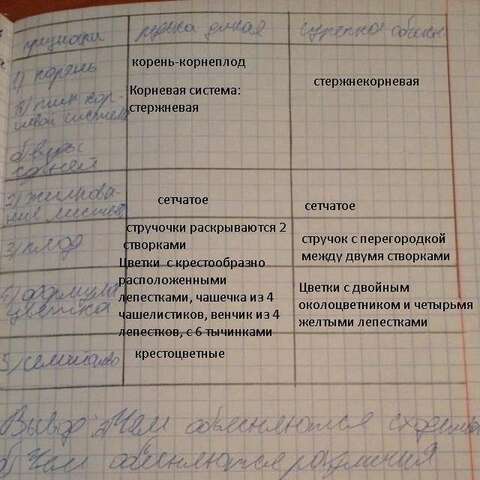 признаки редька дикая сурепка обыкн
1) корень
корень-корнеплод
стержнекорневая
а) тип кор-
невой системы
Корневая система:
стержневая
б) виды
корней
2) жилкова-
ние листьев
сетчатое
сетчатое
3) плод
стручочки раскрываются 2
створками
стручок с перегородкой
между двумя створками
4) формула
цветка
Цветки с крестообразно
расположенными
лепестками, чашечка из 4
чашелистиков, венчик из 4
лепестков, с 6 тычинками
Цветки с двойным
околоцветником и четырьмя
желтыми лепестками
5) семейство
крестоцветные
Вывод: а) Чем объясняются сходства
б) Чем объясняются различия